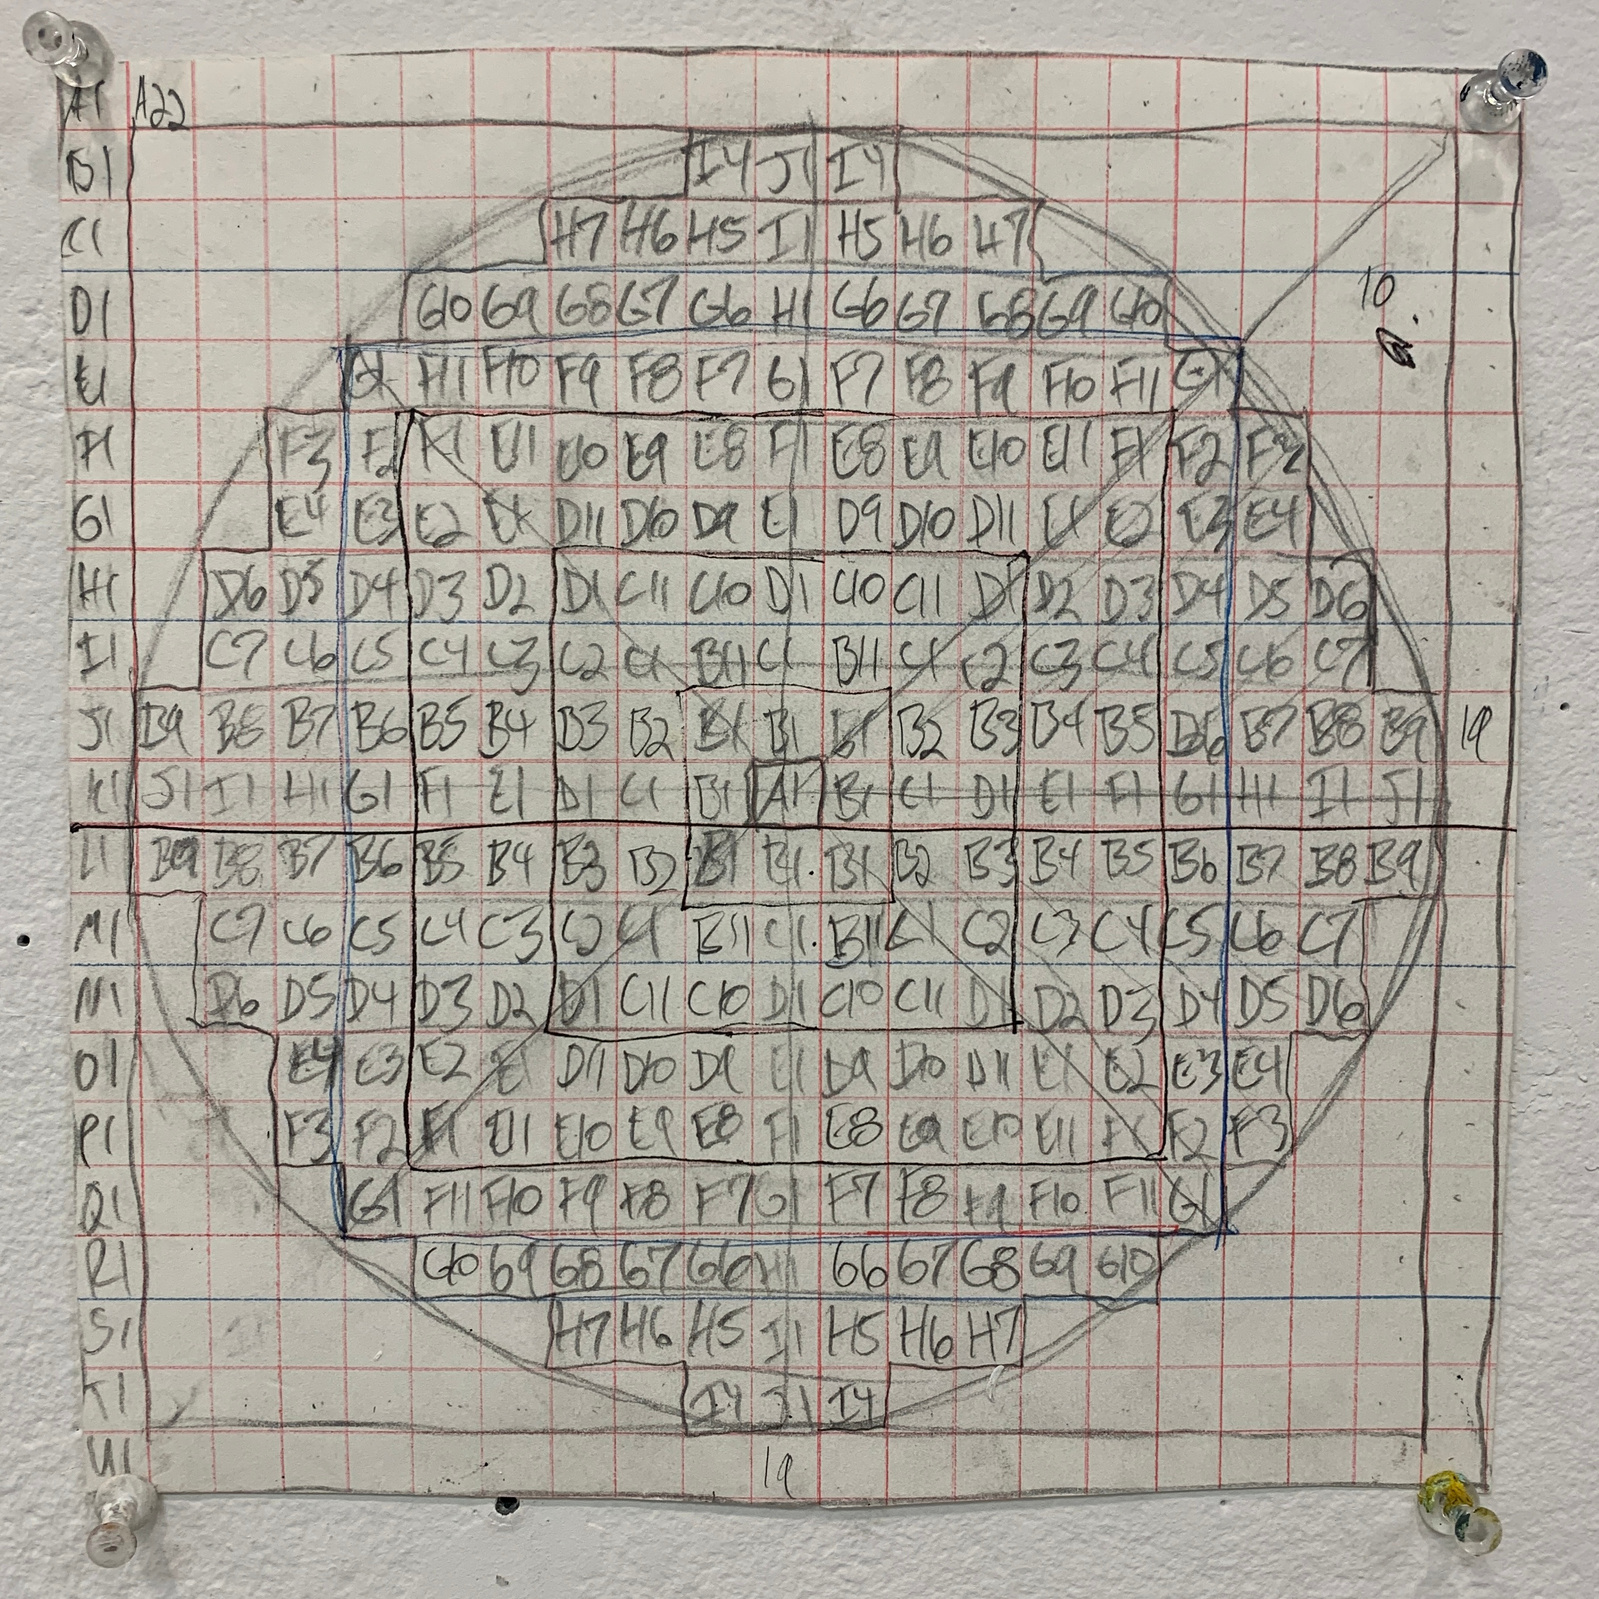 A1 A22
B1 I4 J1 I4
C1 H7 H6 H5 I1 H5 H6 H7
D1 G10 G9 G8 G7 G6 H1 G6 G7 G8 G9 G10 10
E1 G1 F11 F10 F9 F8 F7 G1 F7 F8 F9 F10 F11 G1
F1 F3 F2 F1 E11 E10 E9 E8 F1 E8 E9 E10 E11 F1 F2 F3
G1 E4 E3 E2 E1 D11 D10 D9 E1 D9 D10 D11 E1 E2 E3 E4
H1 D6 D5 D4 D3 D2 D1 C11 C10 D1 C10 C11 D1 D2 D3 D4 D5 D6
I1 C7 C6 C5 C4 C3 C2 C1 B11 C1 B11 C1 C2 C3 C4 C5 C6 C7
J1 B9 B8 B7 B6 B5 B4 B3 B2 B1 B1 B1 B2 B3 B4 B5 B6 B7 B8 B9 19
K1 J1 I1 H1 G1 F1 E1 D1 C1 B1 A1 B1 C1 D1 E1 F1 G1 H1 I1 J1
L1 B9 B8 B7 B6 B5 B4 B3 B2 B1 B1 B1 B2 B3 B4 B5 B6 B7 B8 B9
M1 C7 C6 C5 C4 C3 C2 C1 B11 C1 B11 C1 C2 C3 C4 C5 C6 C7
N1 D6 D5 D4 D3 D2 D1 C11 C10 D1 C10 C11 D1 D2 D3 D4 D5 D6
O1 E4 E3 E2 E1 D11 D10 D9 E1 D9 D10 D11 E1 E2 E3 E4
P1 F3 F2 F1 E11 E10 E9 E8 F1 E8 E9 E10 E11 F1 F2 F3
Q1 G1 F11 F10 F9 F8 F7 G1 F7 F8 F9 F10 F11 G1
R1 G10 G9 G8 G7 G6 H1 G6 G7 G8 G9 G10
S1 H7 H6 H5 I1 H5 H6 H7
T1 I4 J1 I4
U1 19